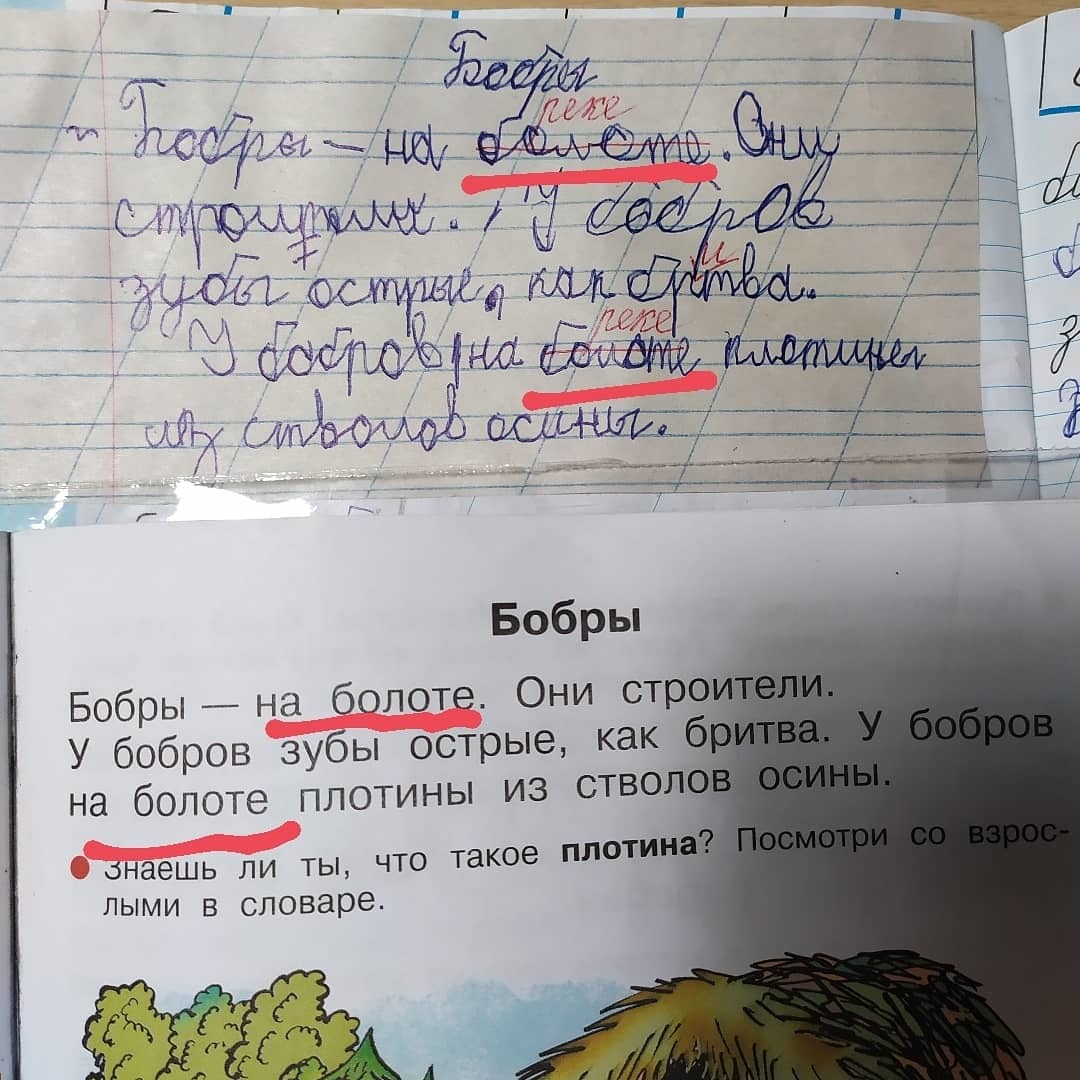 Бобры
реке
Бобры – на болоте. Они
строители. У бобров
и
зубы острые, как бртва.
реке
У бобров на болоте плотины
из стволов осины.
Бобры
Бобры — на болоте. Они строители.
У бобров зубы острые, как бритва. У бобров
на болоте плотины из стволов осины.
Знаешь ли ты, что такое плотина? Посмотри со взрос-
лыми в словаре.